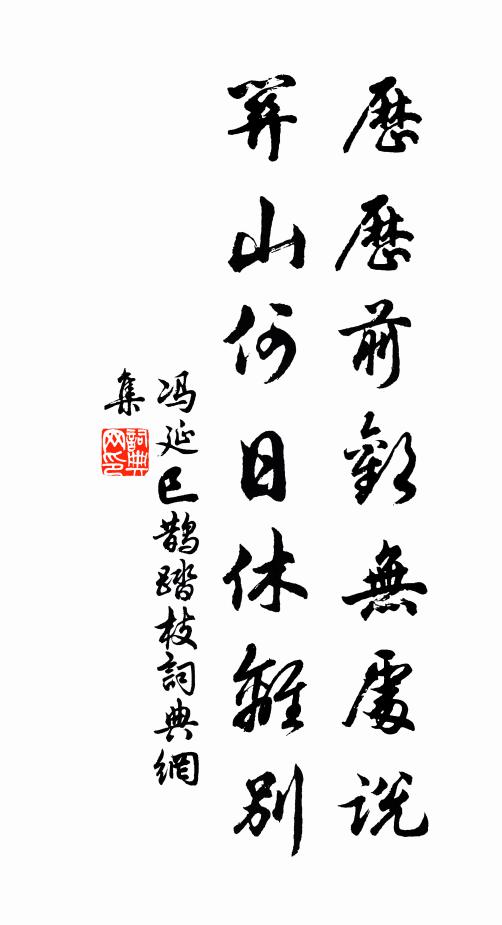 歷歷前歡無處說
關山何日休離別
冯延巳鵲踏枝詞典網
集
詞典
网印